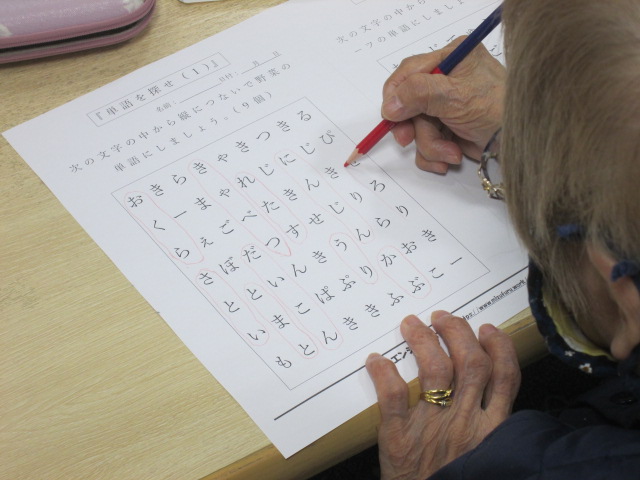 『単語を探せ（１）』
名前： 日付： 月 日
次の文字の中から縦につないで野菜の
単語にしましょう。（９個）
おきらきゃきつきる
くーまゃれじにじび
らぇごべたきんきせ
さぼだつすせじりろ
といんきうんらり
いまこぱぷりかおき
もとんききふぶこー
エンジ
次の文字の中から
一つの単語にしましょ